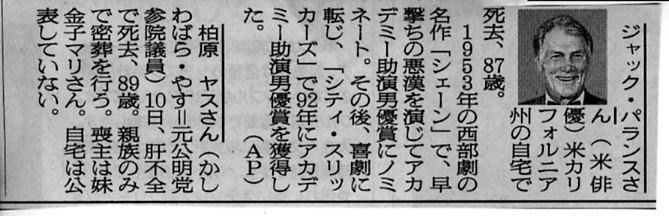 ジャック・パランスさ
ん(米俳
優)米カリ
フォルニア
州の自宅で
死去、87歳。
1953年の西部劇の
名作「シェーン」で、早
撃ちの悪漢を演じてアカ
デミー助演男優賞にノミ
ネート。その後、喜劇に
転じ、「シティ・スリッ
カーズ」で92年にアカデ
ミー助演男優賞を獲得し
た。(AP)
柏原 ヤスさん(かし
わばら・やす=元公明党
参院議員)10日、肝不全
で死去、89歳。親族のみ
で密葬を行う。喪主は妹
金子マリさん。自宅は公
表していない。